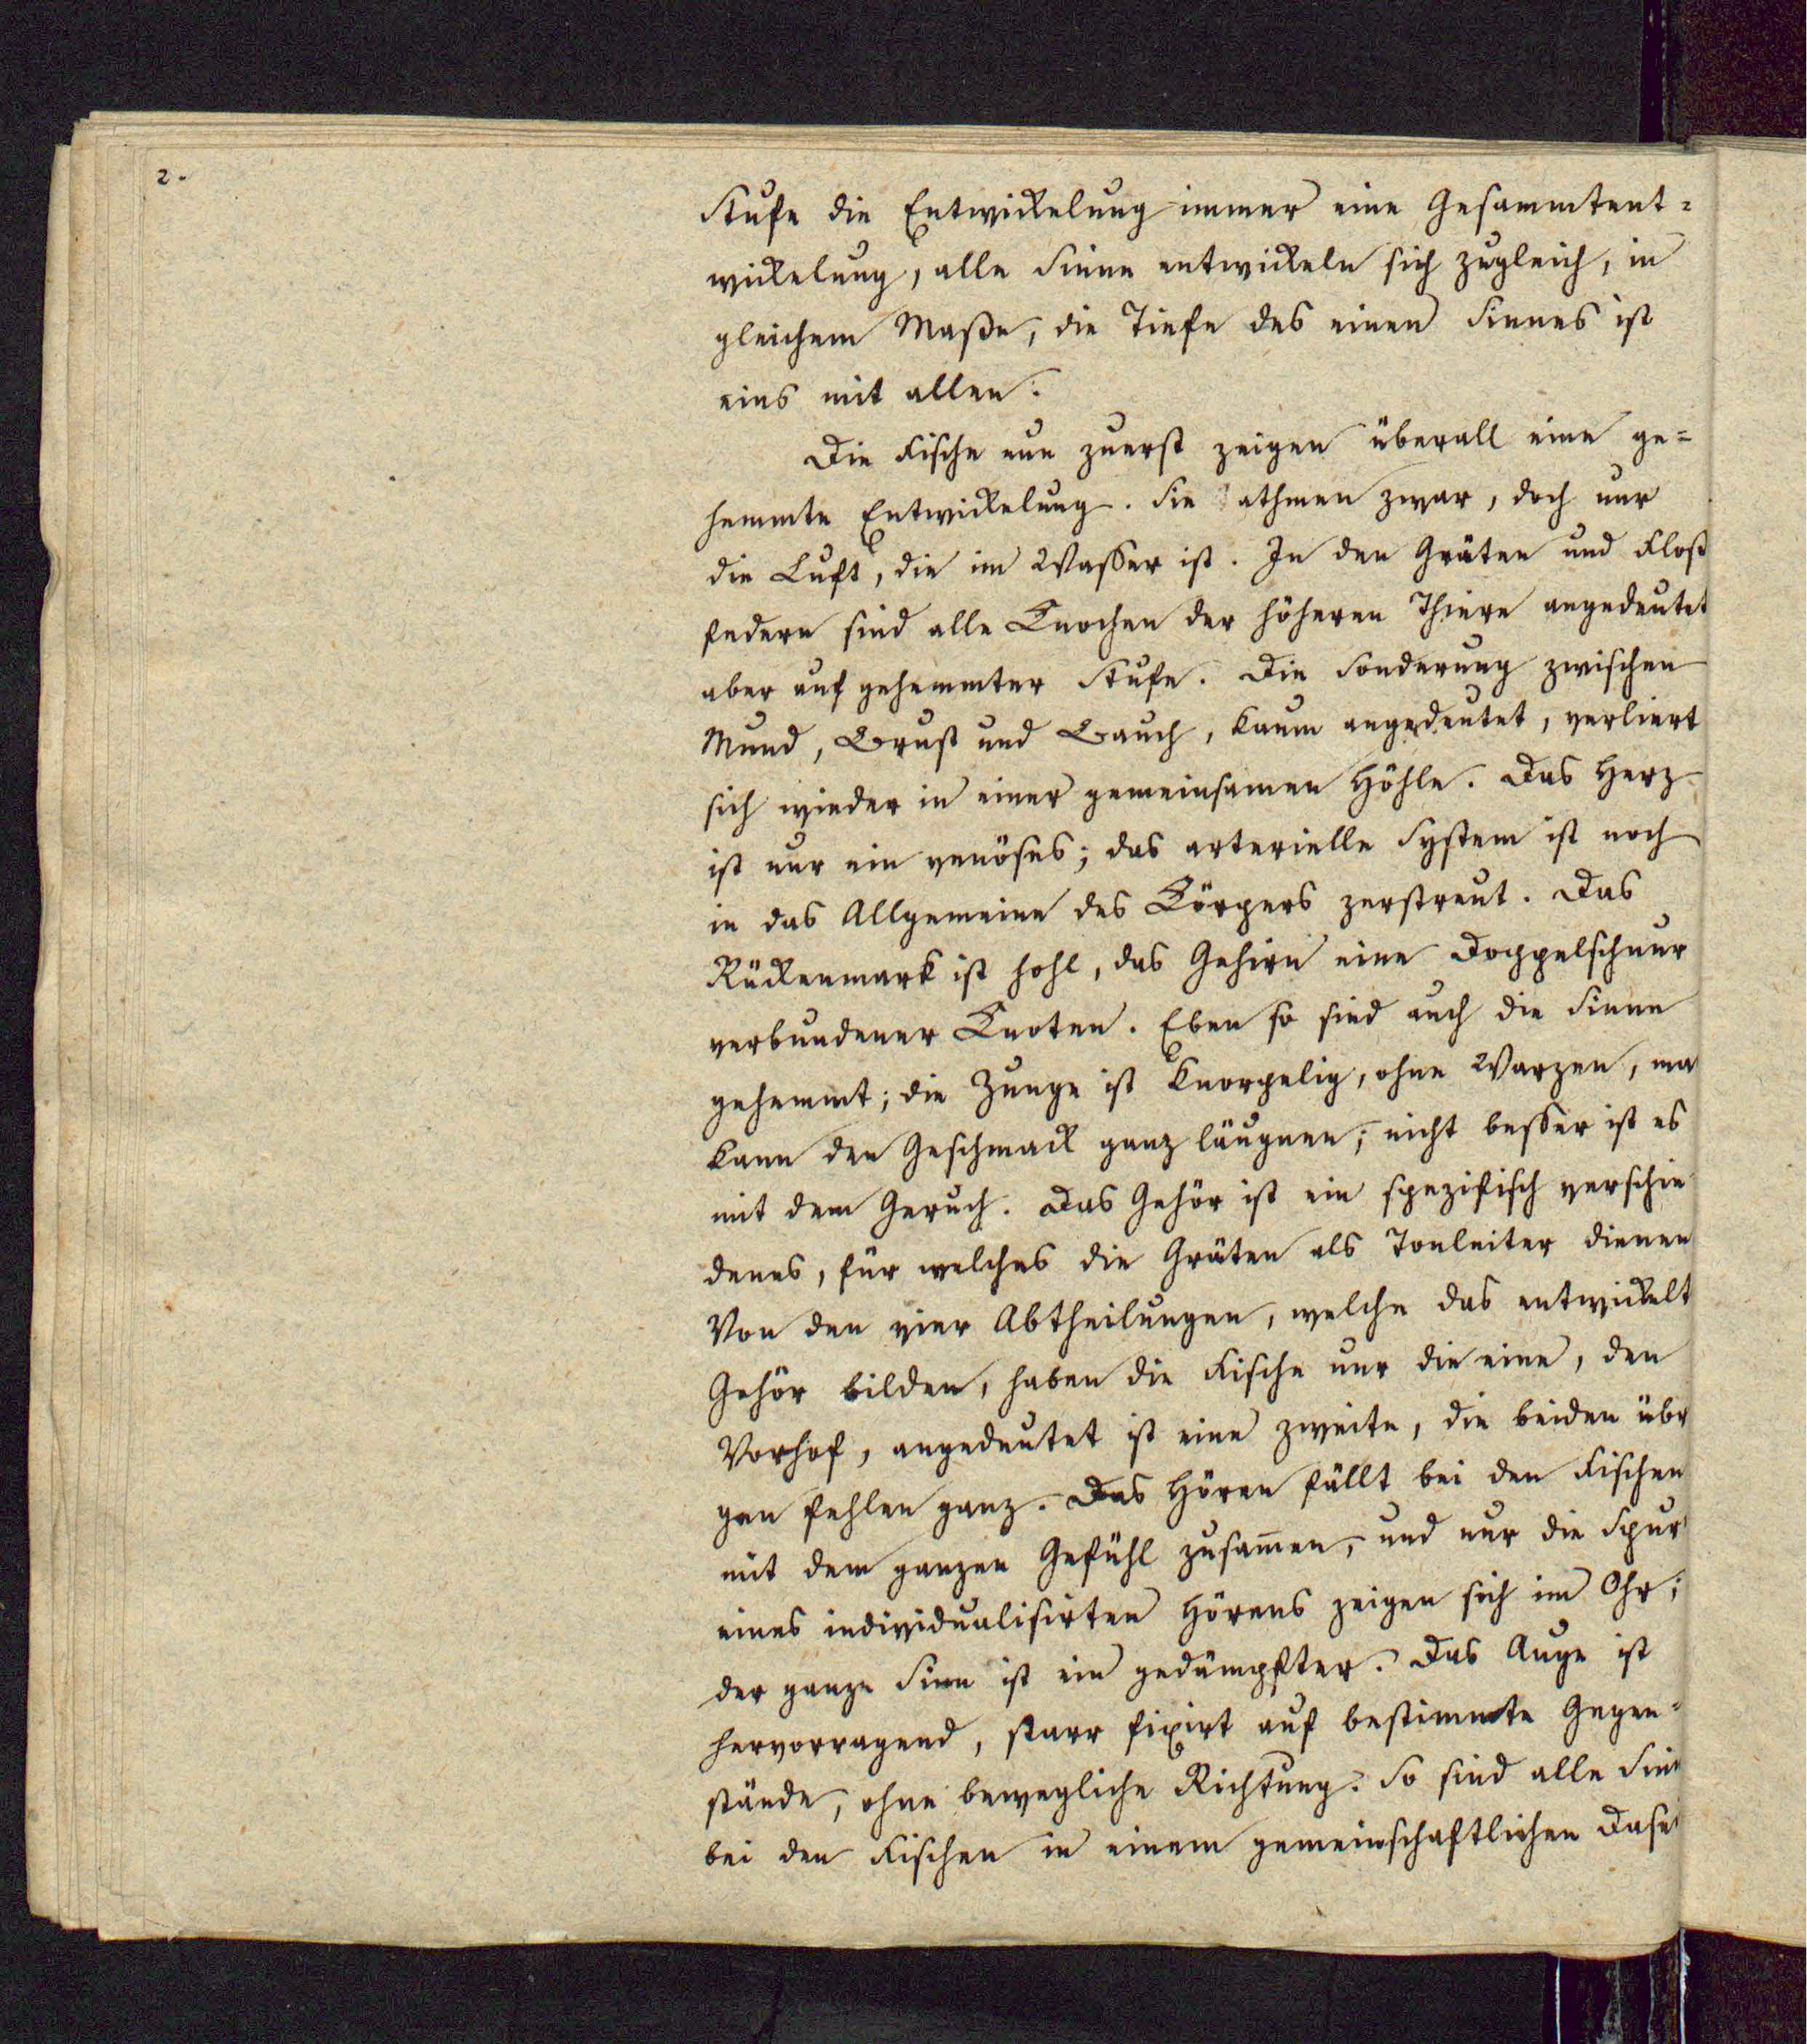 2.
Stufe die Entwickelung immer eine Gesammtent-
wickelung, alle Sinne entwickeln sich zugleich, in
gleichem Maße, die Tiefe des einen Sinnes ist
eins mit allen.
Die Fische nun zuerst zeigen überall eine ge-
hemmte Entwickelung. Sie athmen zwar, doch nur
die Luft, die im Wasser ist. In den Gräten und Floß
federn sind alle Knochen der höheren Thiere angedeutet
aber auf gehemmter Stufe. Die Sonderung zwischen
Mund, Brust und Bauch, kaum angedeutet, verliert
sich wieder in einer gemeinsamen Höhle. Das Herz
ist nur ein venöses; das arterielle System ist noch
in das Allgemeine des Körpers zerstreut. Das
Rückenmark ist hohl, das Gehirn eine Doppelschnur
verbundener Knoten. Eben so sind auch die Sinne
gehemmt; die Zunge ist knorpelig, ohne Warzen, ma
kann den Geschmack ganz läugnen; nicht besser ist es
mit dem Geruch. Das Gehör ist ein spezifisch verschie
denes, für welches die Gräten als Tonleiter dienen
Von den vier Abtheilungen, welche das entwickelt
Gehör bilden, haben die Fische nur die eine, den
Vorhof, angedeutet ist eine zweite, die beiden übr
gen fehlen ganz. Das Hören fällt bei den Fischen
mit dem ganzen Gefühl zusam̅en, und nur die Spur
eines individualisirten Hörens zeigen sich im Ohr;
der ganze Sinn ist ein gedämpfter. Das Auge ist
hervorragend, starr fixirt auf bestimmte Gegen-
stände, ohne bewegliche Richtung. So sind alle Sin
bei den Fischen in einem gemeinschaftlichen Dasei